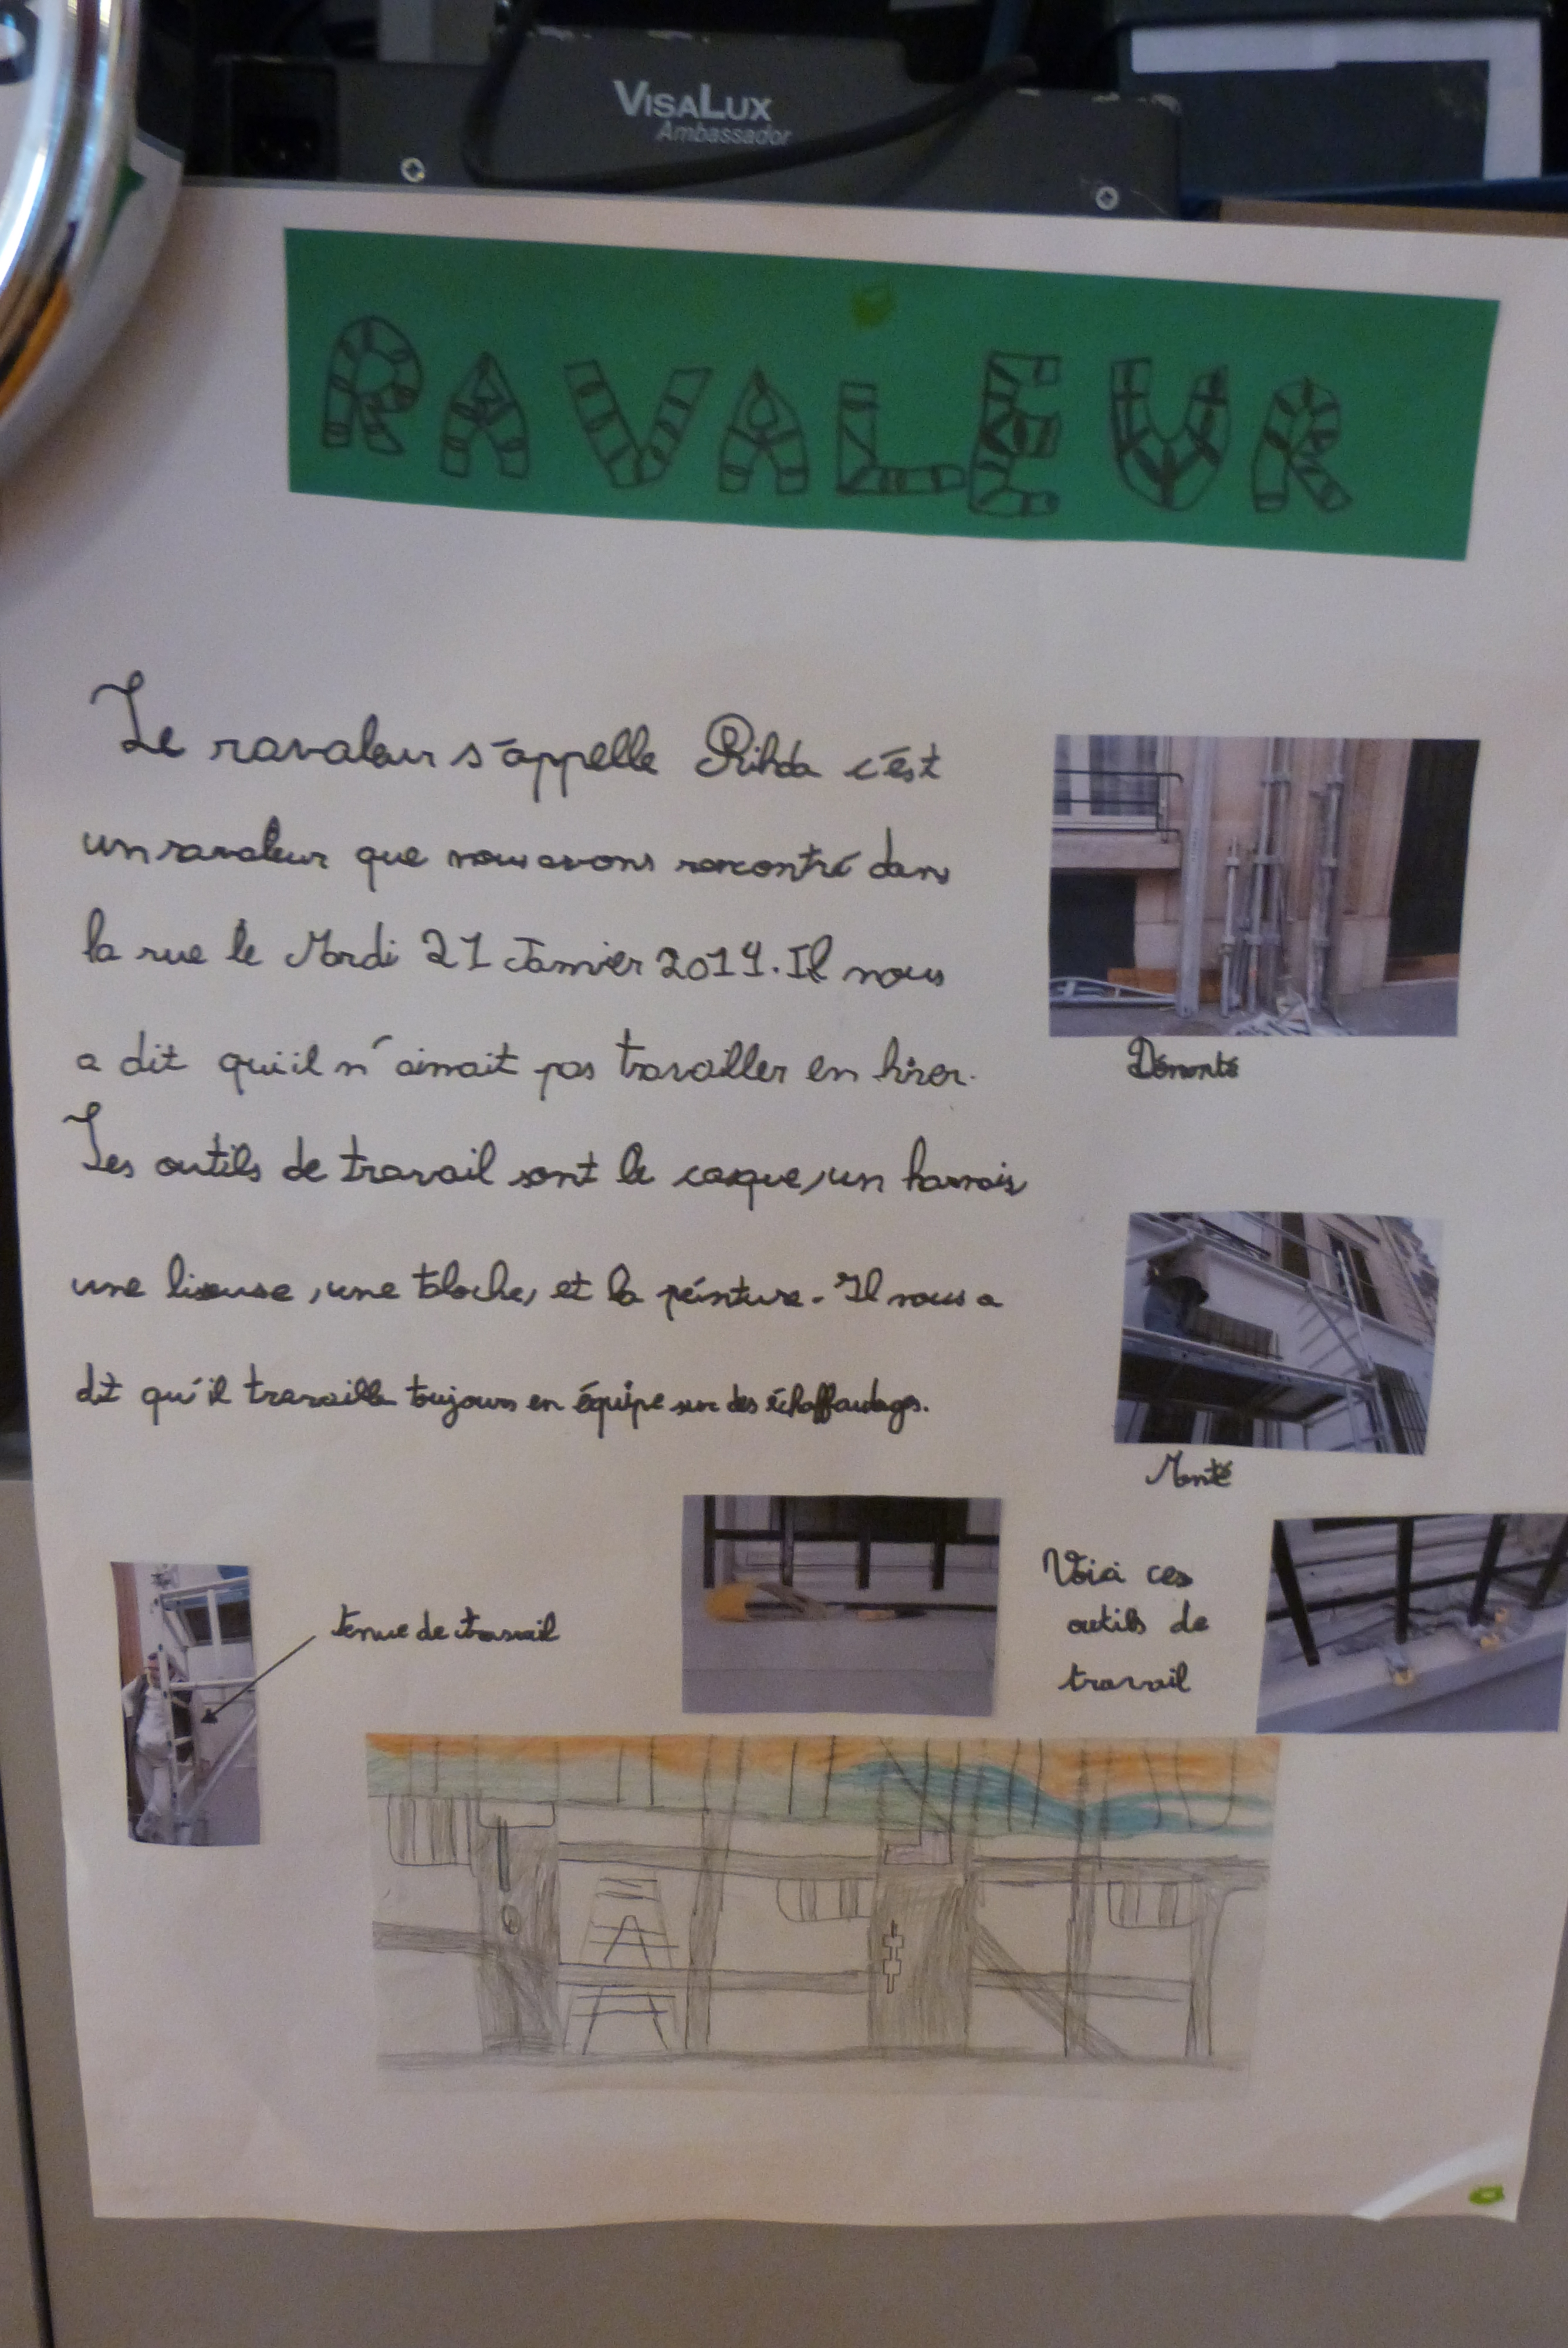 VISALUX
Ambassador
RAVALEUR
Le ravaleur s'appelle Rihda c'est
un ravaleur que nous avons rencontré dans
la rue le Mardi 21 Janvier 2014. Il nous
a dit qu'il n'aimait pas travailler en hiver.
Les outils de travail sont le casque, un harnais
une liseuse, une taloche, et la peinture. Il nous a
dit qu'il travaille toujours en équipe sur des échaffaudages.
Démonté
Monté
tenue de travail
Voici ces
outils de
travail